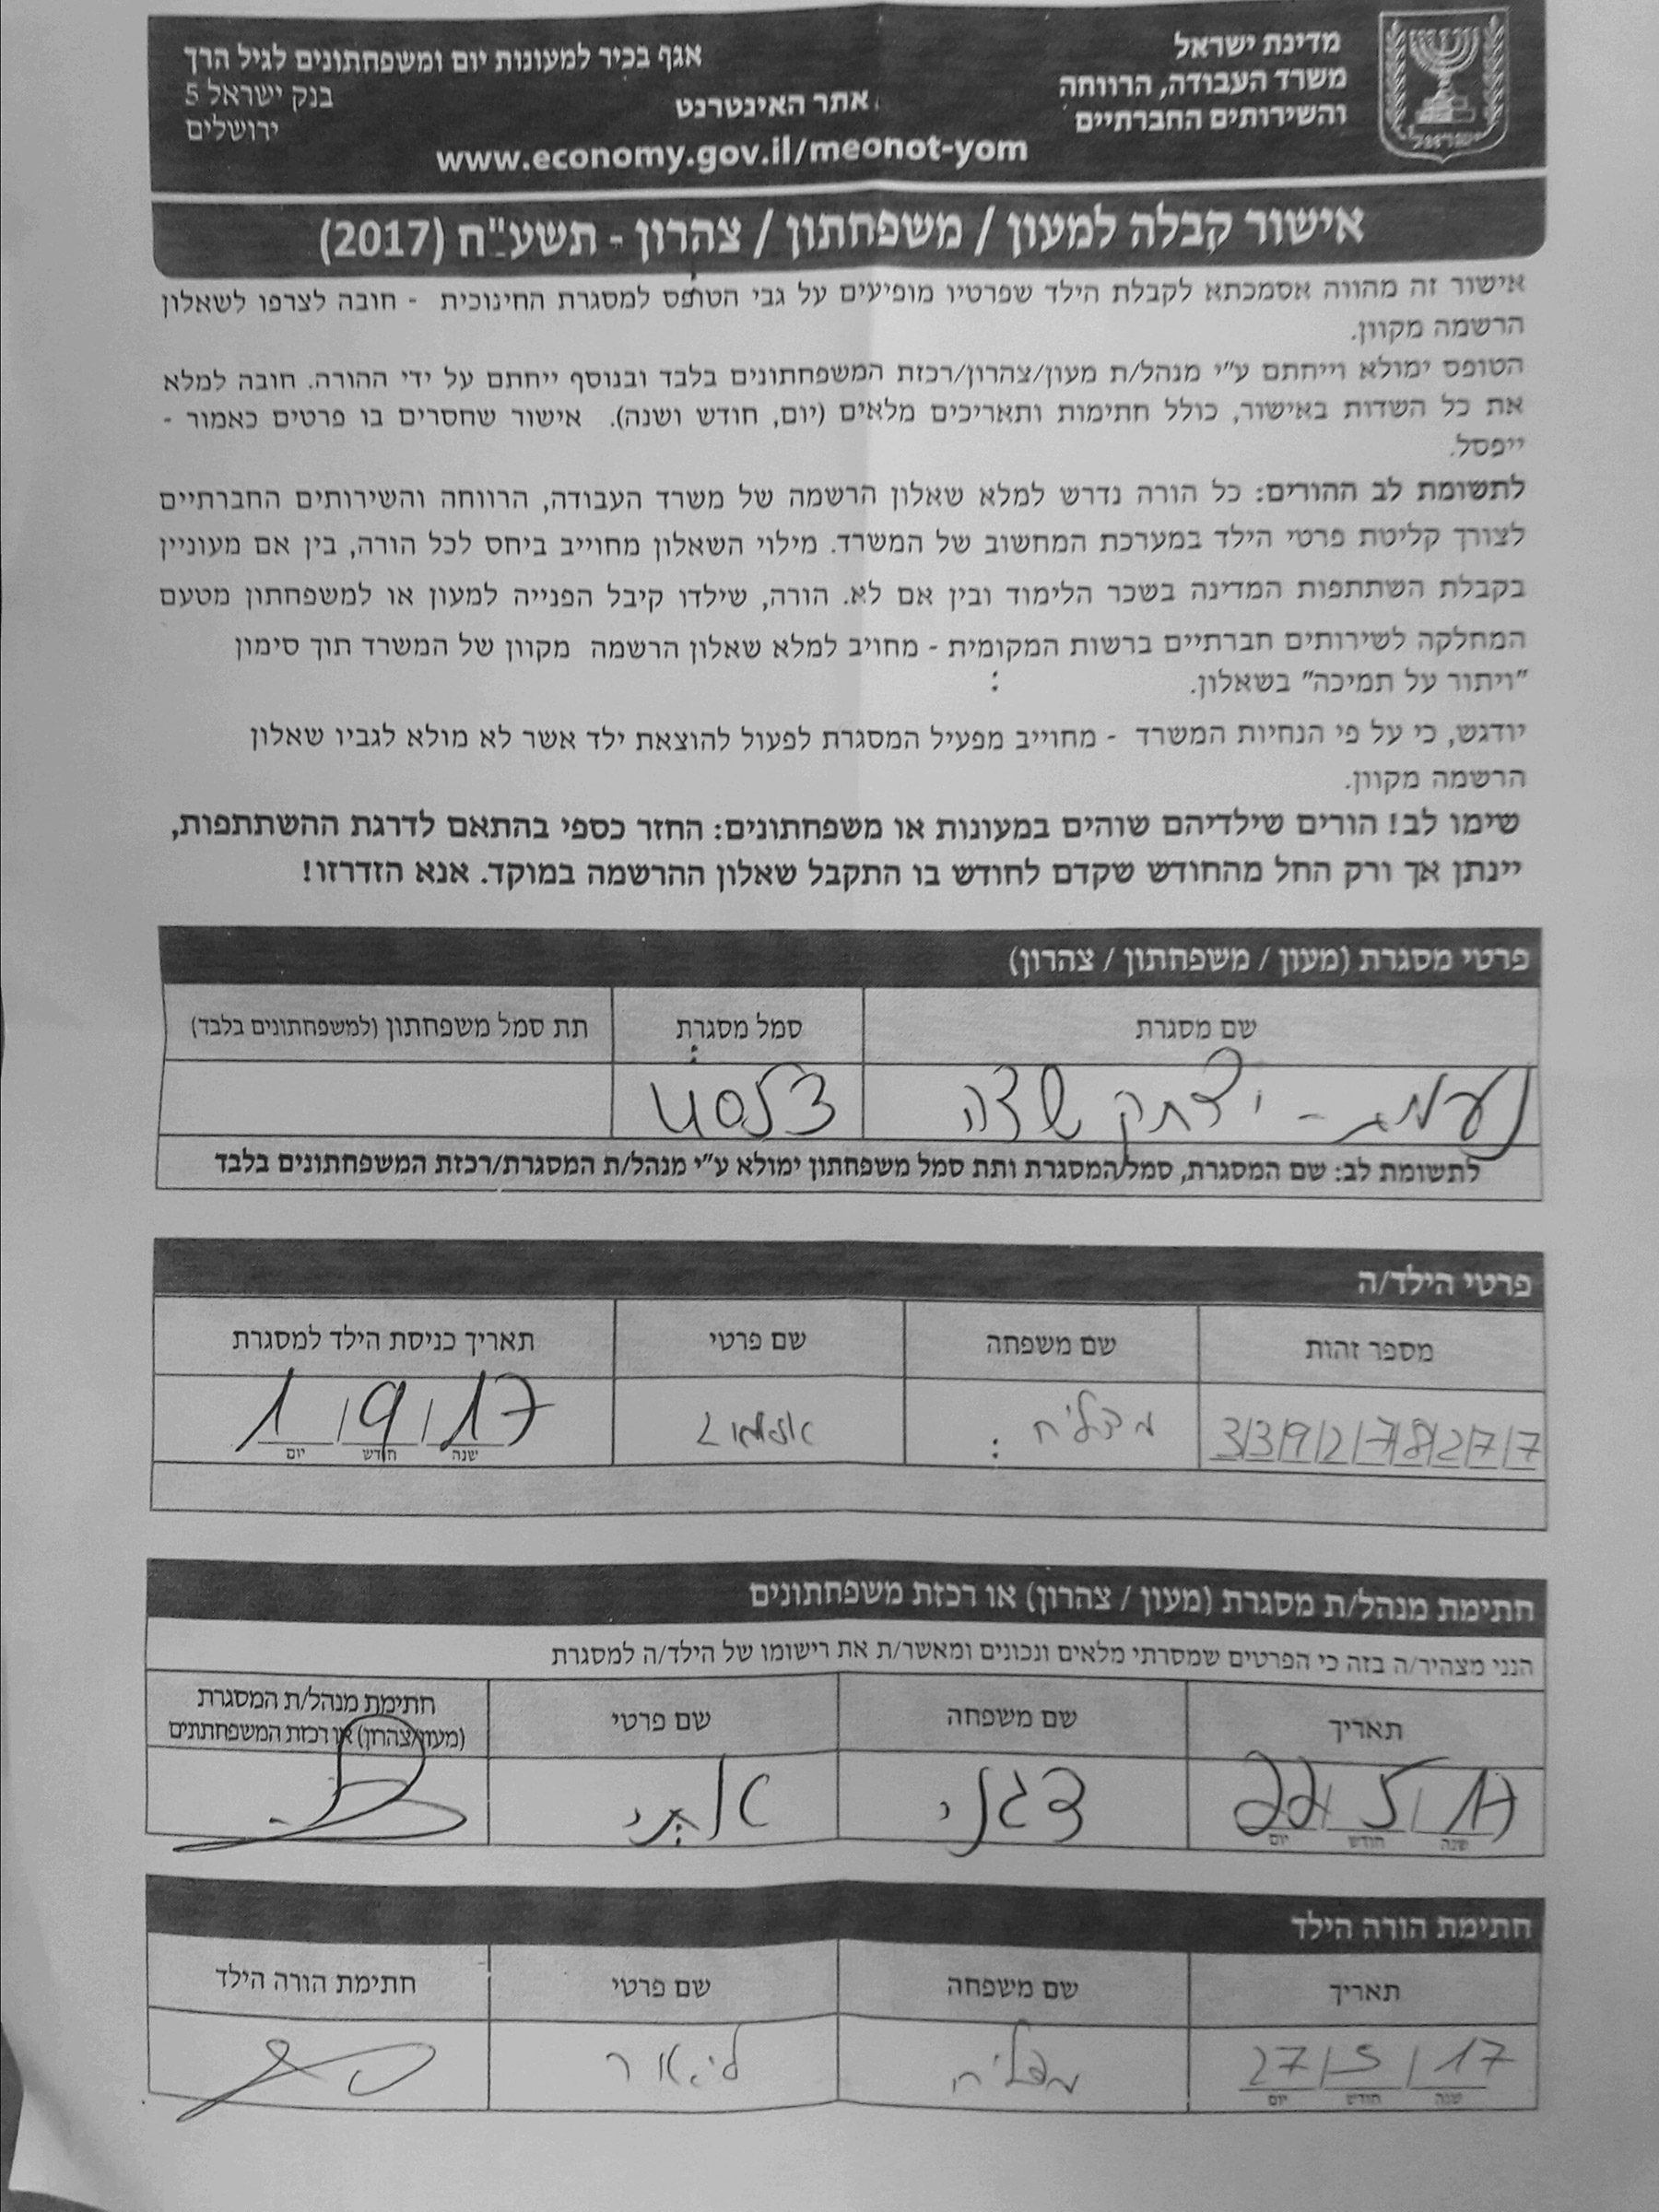 מדינת ישראל
משרד העבודה, הרווחה
והשירותים החברתיים
אגף בכיר למעונות יום ומשפחתונים לגיל הרך
בנק ישראל 5
ירושלים
אתר האינטרנט
www.economy.gov.il/meonot-yom
אישור קבלה למעון / משפחתון / צהרון - תשע"ח (2017)
אישור זה מהווה אסמכתא לקבלת הילד שפרטיו מופיעים על גבי הטופס למסגרת החינוכית - חובה לצרפו לשאלון
הרשמה מקוון.
הטופס ימולא וייחתם ע"י מנהל/ת מעון/צהרון/רכזת המשפחתונים בלבד ובנוסף ייחתם על ידי ההורה. חובה למלא
את כל השדות באישור, כולל חתימות ותאריכים מלאים (יום, חודש ושנה). אישור שחסרים בו פרטים כאמור -
ייפסל.
לתשומת לב ההורים: כל הורה נדרש למלא שאלון הרשמה של משרד העבודה, הרווחה והשירותים החברתיים
לצורך קליטת פרטי הילד במערכת המחשוב של המשרד. מילוי השאלון מחוייב ביחס לכל הורה, בין אם מעוניין
בקבלת השתתפות המדינה בשכר הלימוד ובין אם לא. הורה, שילדו קיבל הפנייה למעון או למשפחתון מטעם
המחלקה לשירותים חברתיים ברשות המקומית - מחויב למלא שאלון הרשמה מקוון של המשרד תוך סימון
"ויתור על תמיכה" בשאלון.
יודגש, כי על פי הנחיות המשרד - מחוייב מפעיל המסגרת לפעול להוצאת ילד אשר לא מולא לגביו שאלון
הרשמה מקוון.
שימו לב! הורים שילדיהם שוהים במעונות או משפחתונים: החזר כספי בהתאם לדרגת ההשתתפות,
יינתן אך ורק החל מהחודש שקדם לחודש בו התקבל שאלון ההרשמה במוקד. אנא הזדרזו!
פרטי מסגרת (מעון / משפחתון / צהרון)
שם מסגרת סמל מסגרת תת סמל משפחתון (למשפחתונים בלבד)
נעמת - יצחק שדה
לתשומת לב: שם המסגרת, סמל המסגרת ותת סמל משפחתון ימולא ע"י מנהל/ת המסגרת/רכזת המשפחתונים בלבד
פרטי הילד/ה
מספר זהות שם משפחה שם פרטי תאריך כניסת הילד למסגרת
339278277 מצליח 1/9/17
יום חודש שנה
חתימת מנהל/ת מסגרת (מעון / צהרון) או רכזת משפחתונים
הנני מצהיר/ה בזה כי הפרטים שמסרתי מלאים ונכונים ומאשר/ת את רישומו של הילד/ה למסגרת
תאריך שם משפחה שם פרטי חתימת מנהל/ת המסגרת
(מעון/צהרון) או רכזת המשפחתונים
22/5/17 דגני אתי
יום חודש שנה
חתימת הורה הילד
תאריך שם משפחה שם פרטי חתימת הורה הילד
27/5/17 מצליח ליאור
יום חודש שנה